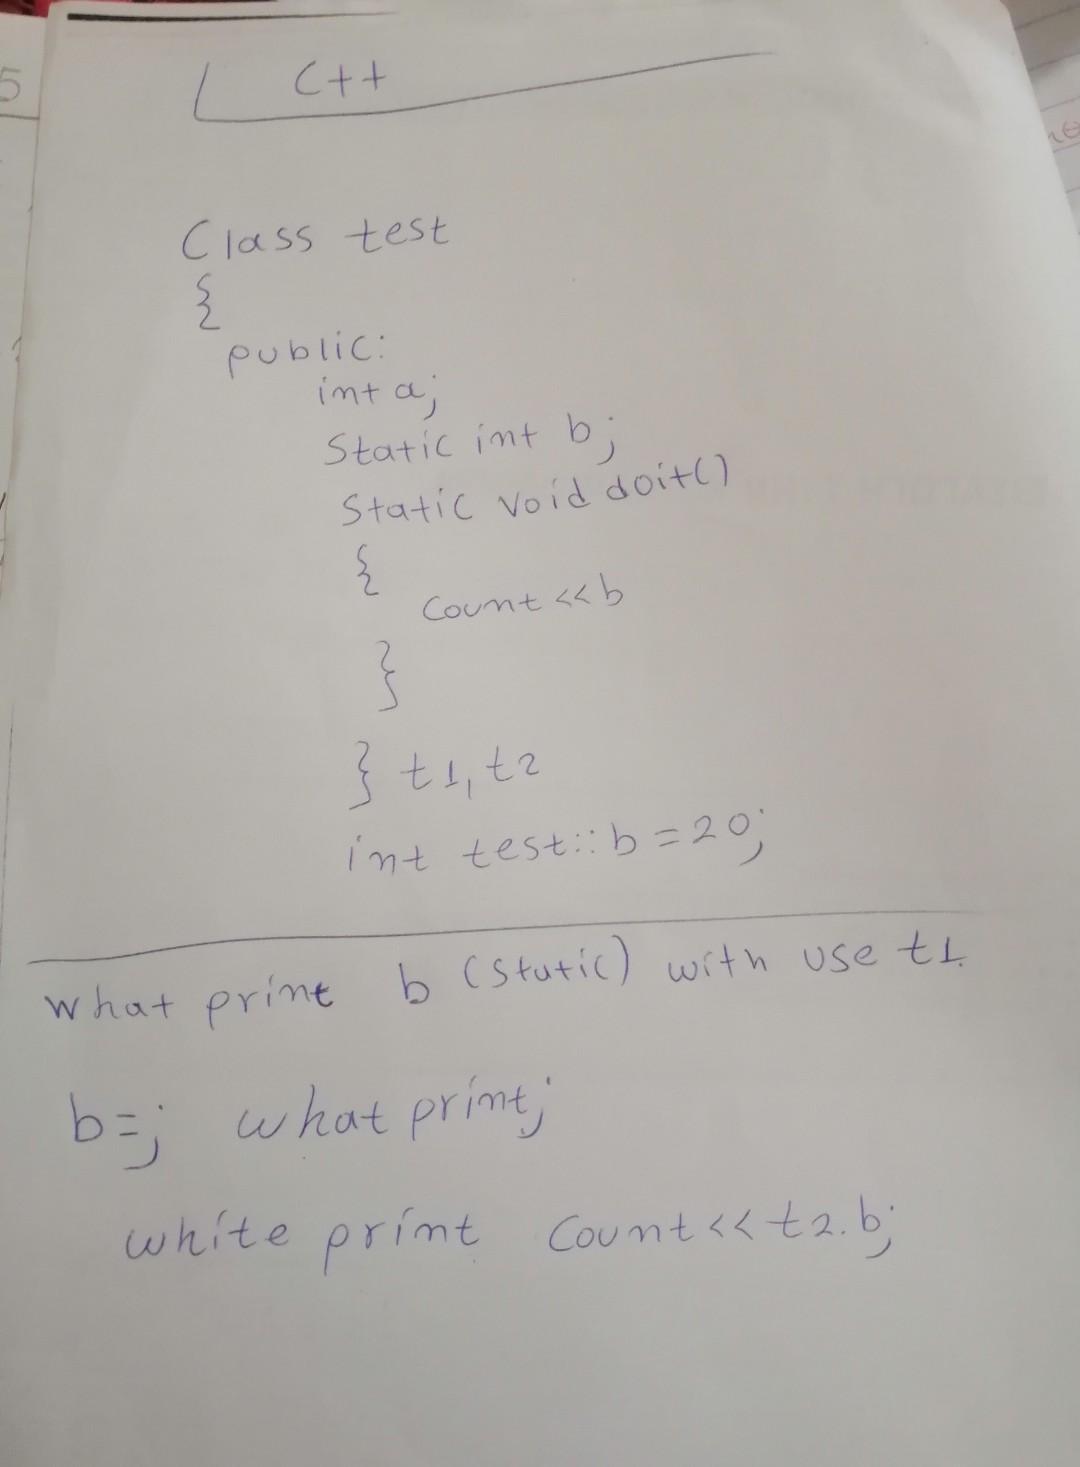 5
C++
Class test
{
public:
int a;
Static int b;
Static void doit()
{
Count <<b
}
} t1, t2
int test::b = 20;
what print b (static) with use t1.
b=; what print;
white print Count<<t2.b;